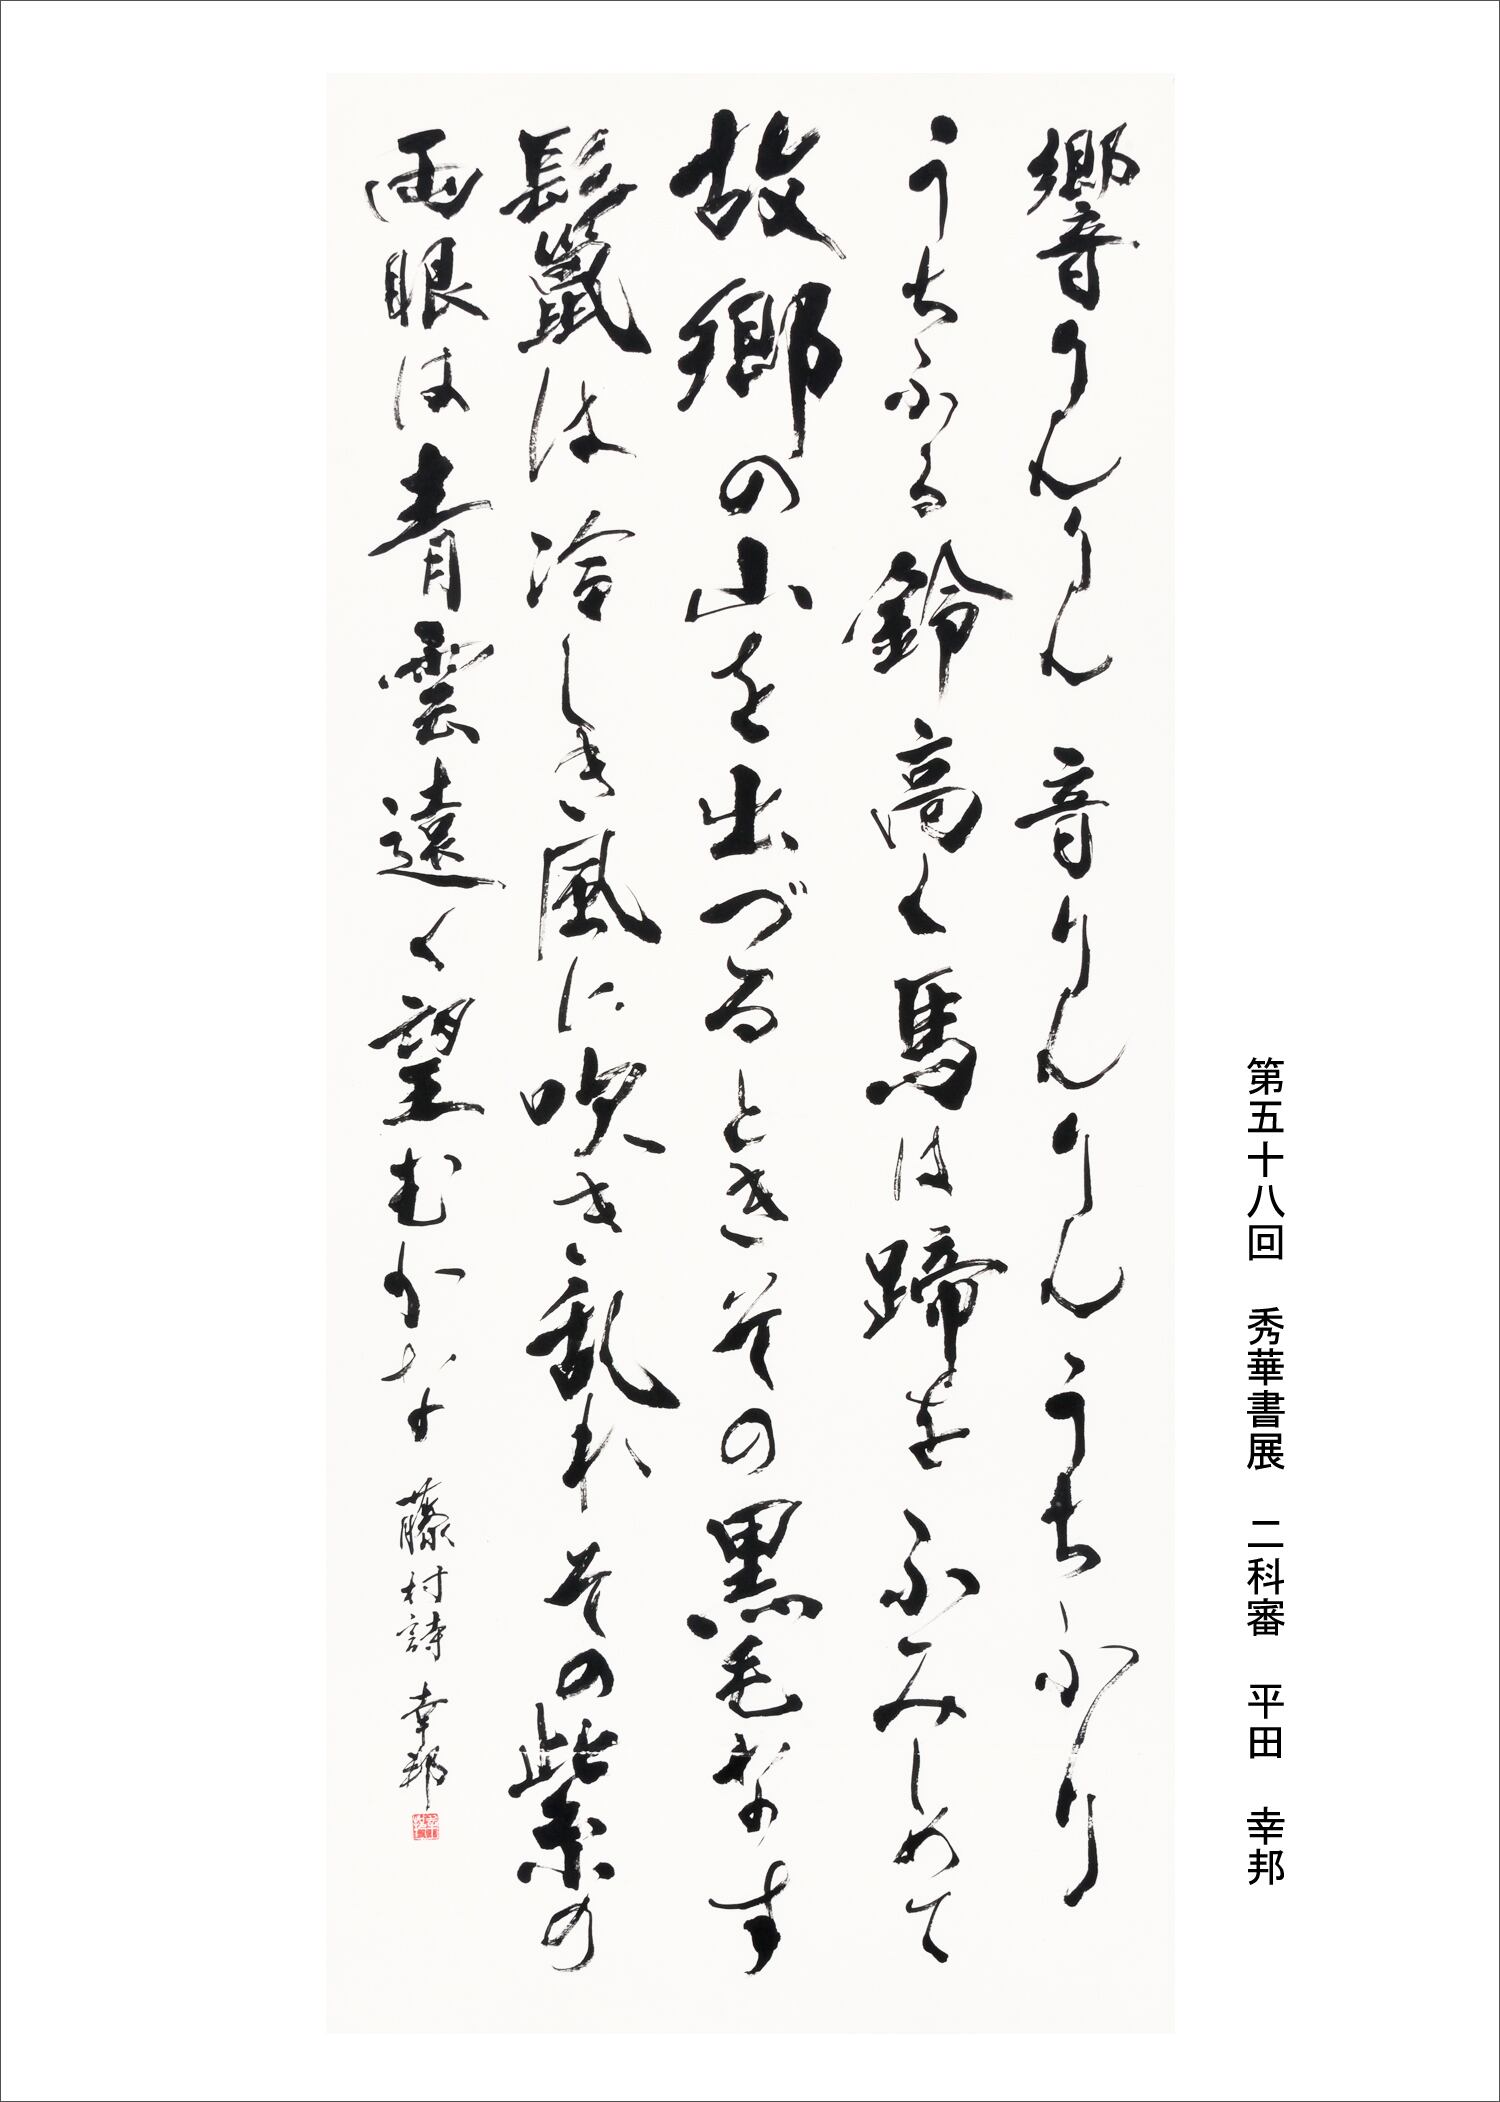 第五十八回　秀華書展　二科審　平田　幸邦
響りんりん音りんりんうちふり
うちふる鈴高く馬は蹄をふみしめて
故郷の山を出づるときその黒毛なす
鬣は冷しき風に吹き乱れその紫の
両眼は青雲遠く望むかな　藤村詩　幸邦